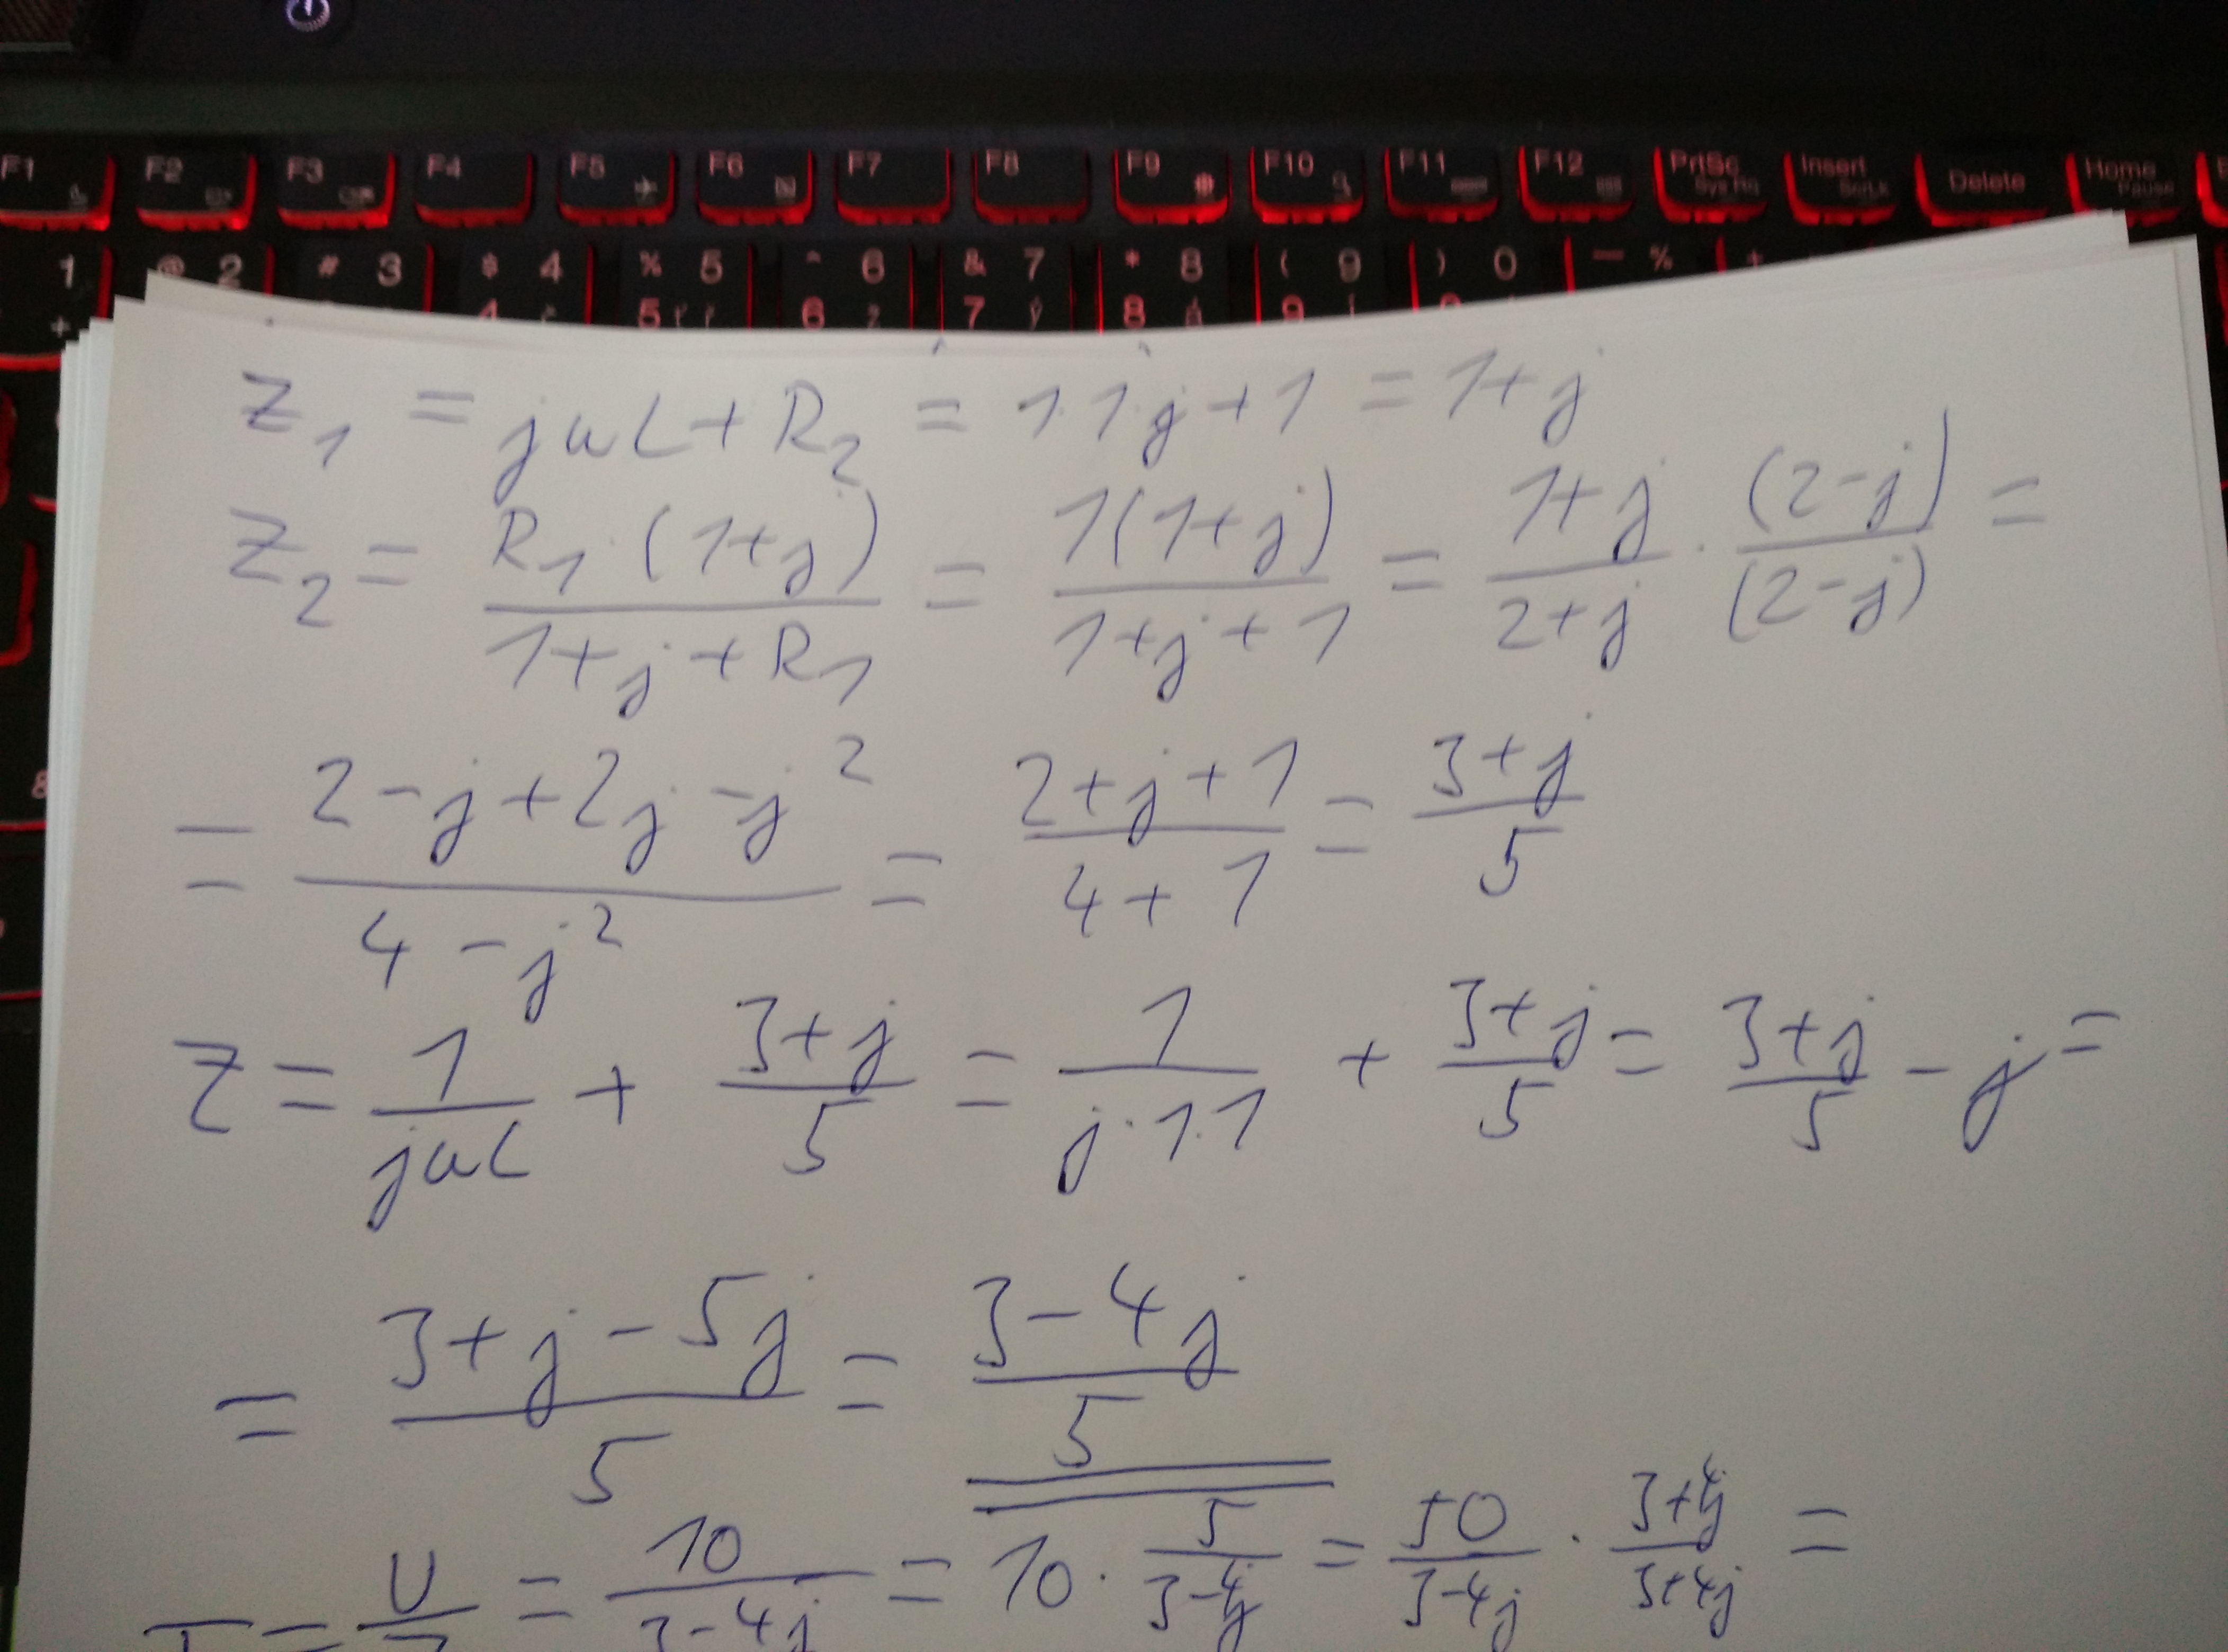 F1 F2 F3 F4 F5 F6 F7 F8 F9 F10 F11 F12 PrtSc SysRq Insert ScrLk Delete Home Pause
1 @ 2 # 3 $ 4 % 5 ^ 6 & 7 * 8 ( 9 ) 0 — % +
+ 4 5 6 7 ý 8 á 9 í
z₁ = jωL + R₂ = 1·1·j + 1 = 1 + j
z₂ = R₁·(1+j) / (1+j+R₁) = 1(1+j) / (1+j+1) = (1+j) / (2+j) · (2-j) / (2-j) =
= (2 - j + 2j - j²) / (4 - j²) = (2 + j + 1) / (4 + 1) = (3 + j) / 5
Z = 1 / (jωL) + (3+j) / 5 = 1 / (j·1·1) + (3+j) / 5 = (3+j) / 5 - j =
= (3 + j - 5j) / 5 = (3 - 4j) / 5
= U / = 10 / (3-4j) = 10 · 5 / (3-4j) = 50 / (3-4j) · (3+4j) / (3+4j) =